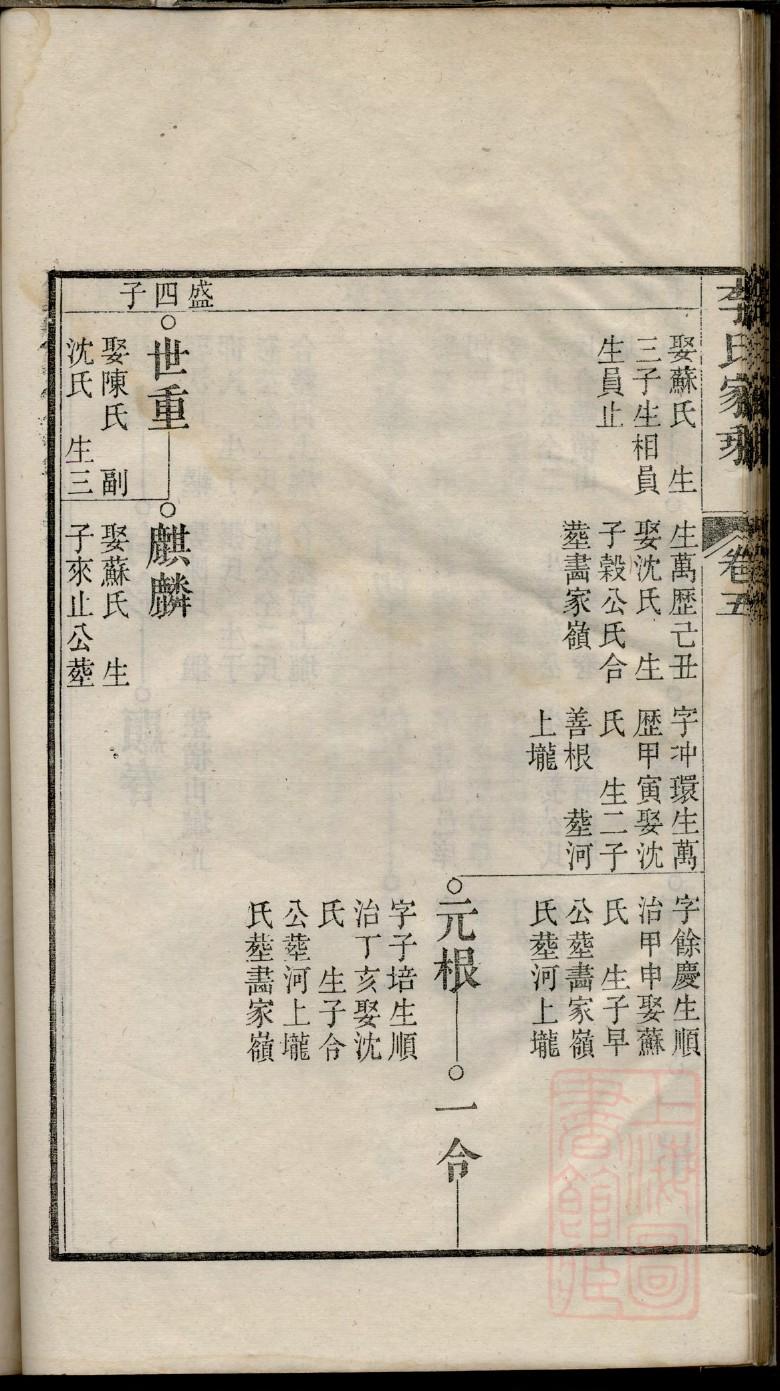 李氏家
卷五
娶蘇氏 生
三子生相員
生員止
生萬歷己丑
娶沈氏 生
子榖公氏合
塟畵家嶺
字冲環生萬
歷甲寅娶沈
氏 生二子
善根 塟河
上壠
字餘慶生順
治甲申娶蘇
氏 生子早
公塟畵家嶺
氏塟河上壠
元根
字子培生順
治丁亥娶沈
氏 生子合
公塟河上壠
氏塟畵家嶺
一合
盛四子
世重
娶陳氏 副
沈氏 生三
麒麟
娶蘇氏 生
子來止公塟
上海圖書館藏